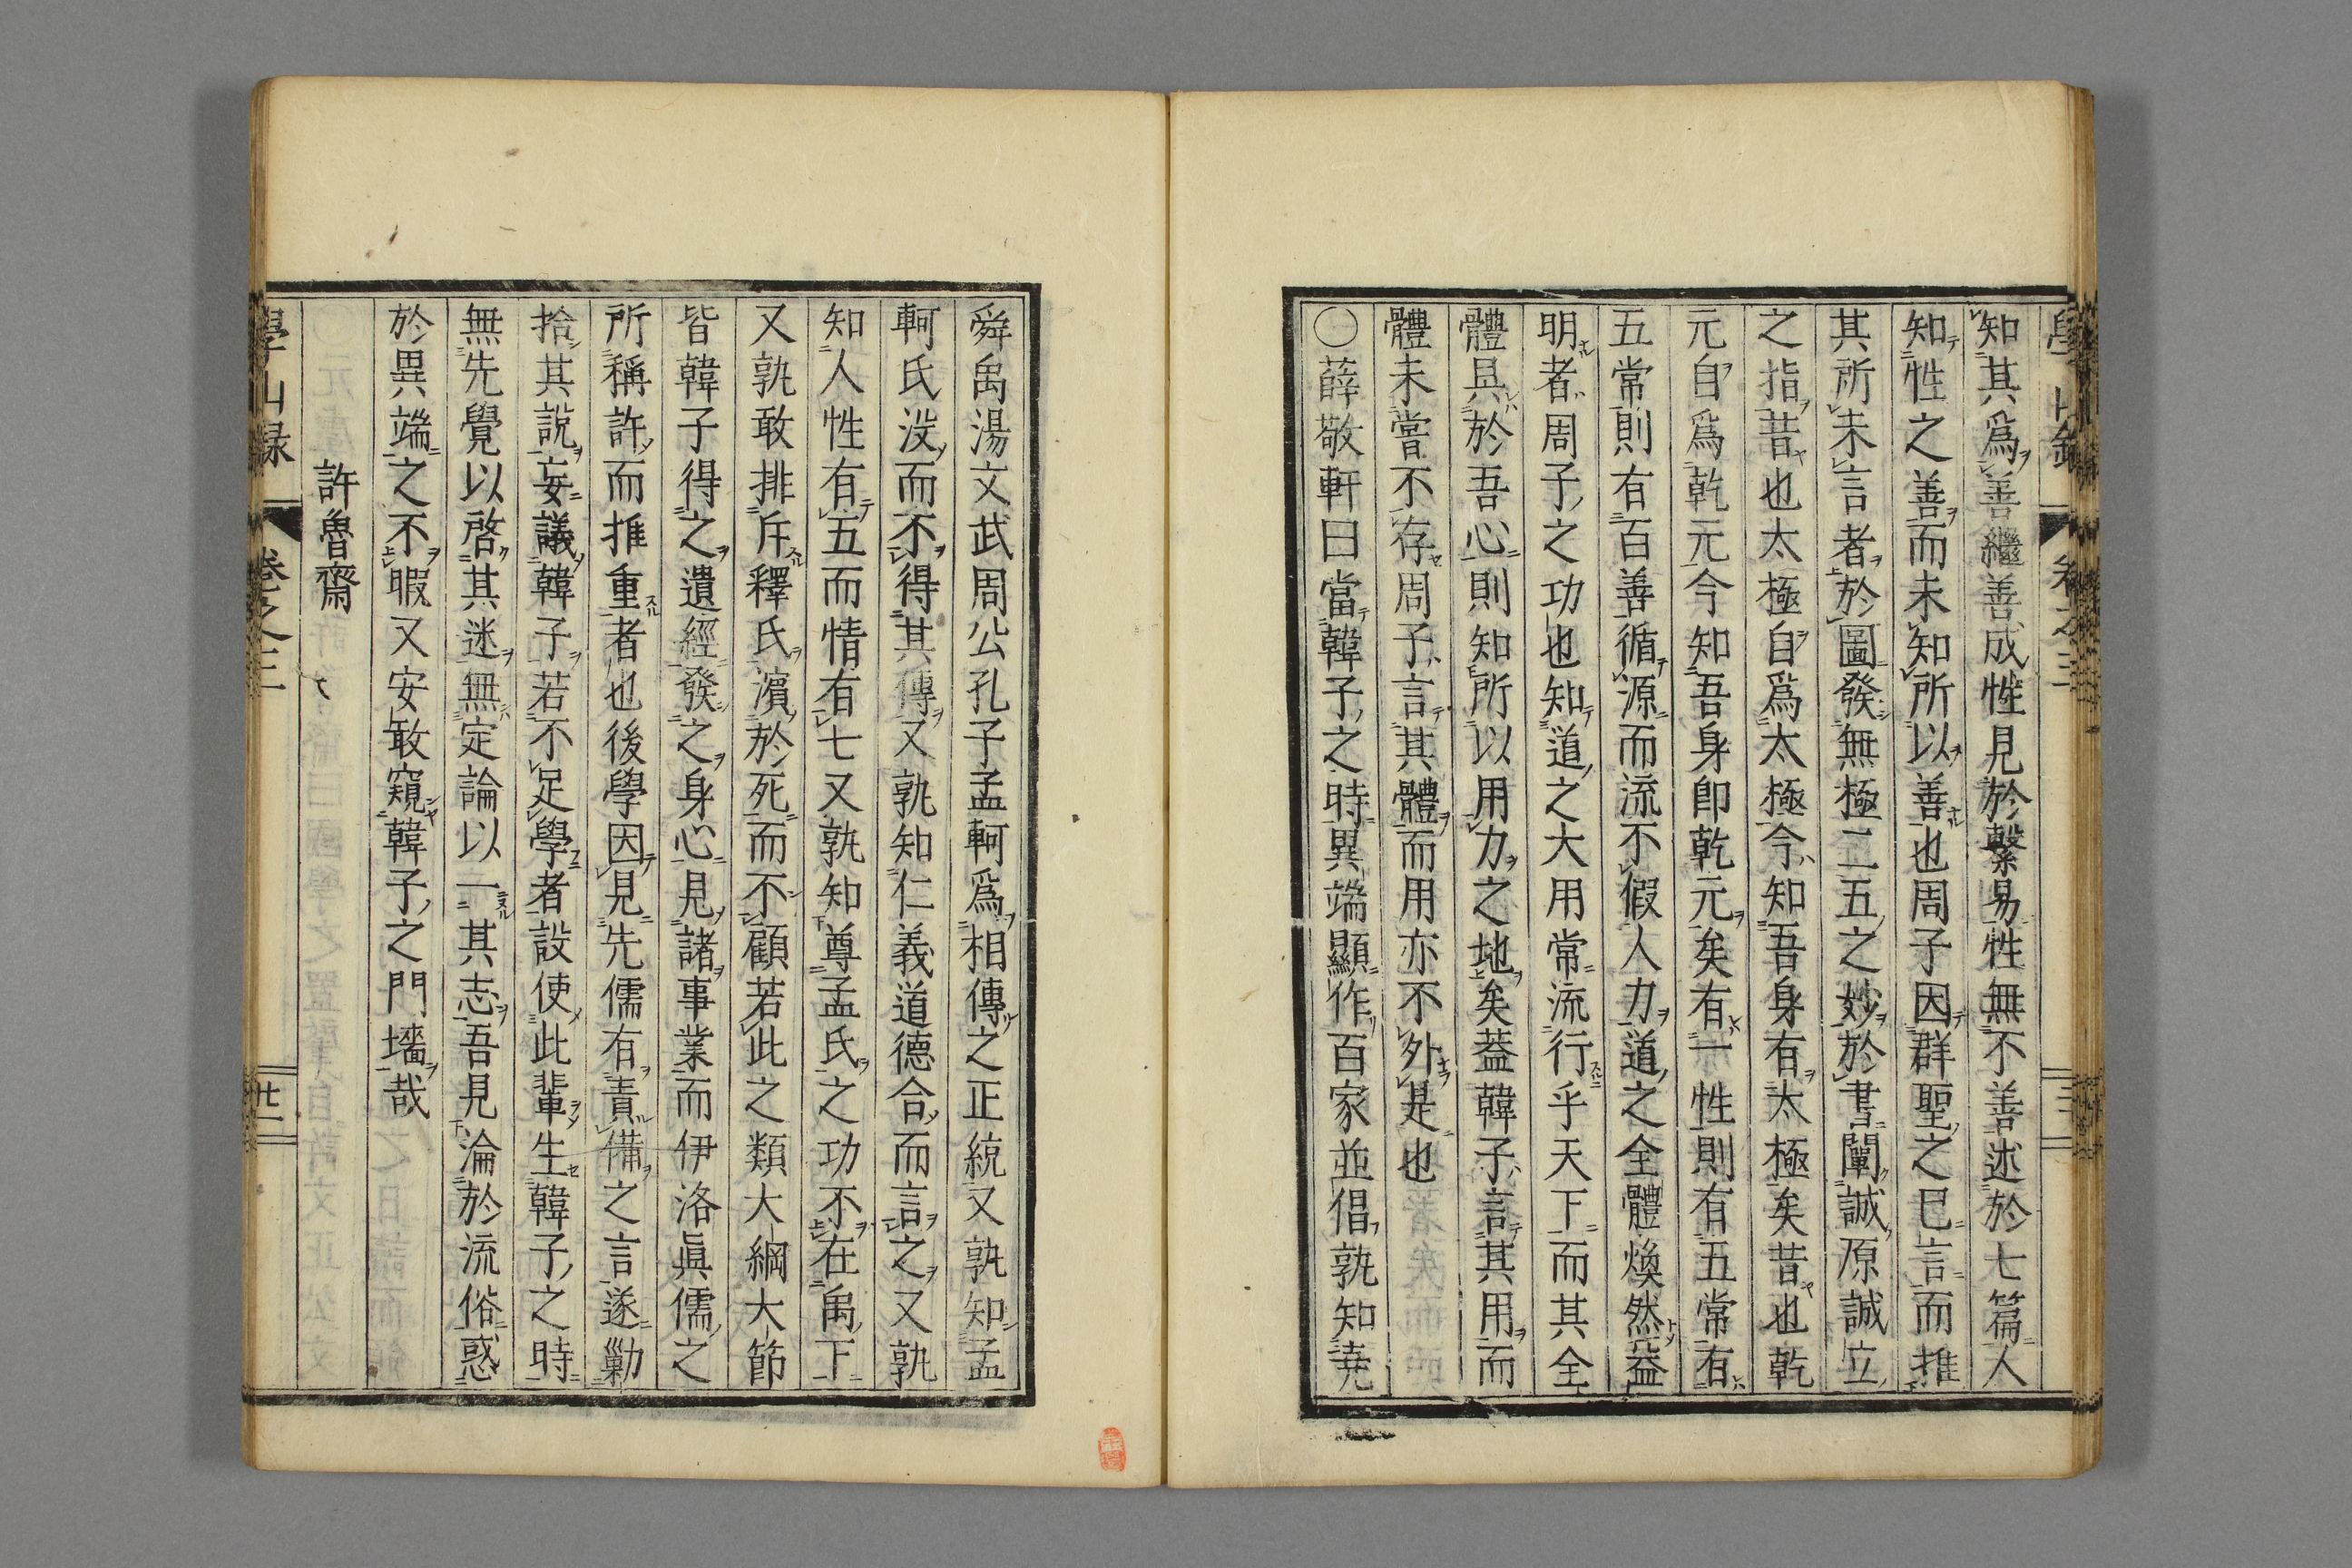 知其爲善繼善成性見於繫易性無不善述於七篇人
知性之善而未知所以善也周子因群聖之已言而推
其所未言者於圖發無極二五之妙於書闡誠原誠立
之指昔也太極自爲太極今知吾身有太極矣昔也乾
元自爲乾元今知吾身卽乾元矣有一性則有五常有
五常則有百善循源而流不假人力道之全體煥然益
明者周子之功也知道之大用常流行乎天下而其全
體具於吾心則知所以用力之地矣葢韓子言其用而
體未嘗不存周子言其體而用亦不外是也
〇薛敬軒曰當韓子之時異端顯作百家並倡孰知堯
舜禹湯文武周公孔子孟軻爲相傳之正統又孰知孟
軻氏沒而不得其傳又孰知仁義道德合而言之又孰
知人性有五而情有七又孰知尊孟氏之功不在禹下
又孰敢排斥釋氏濱於死而不顧若此之類大綱大節
皆韓子得之遺經發之身心見諸事業而伊洛眞儒之
所稱許而推重者也後學因見先儒有責備之言遂勦
拾其說妄議韓子若不足學者設使此輩生韓子之時
無先覺以啓其迷無定論以一其志吾見淪於流俗惑
於異端之不暇又安敢窺韓子之門墻哉
許魯齋
學山録 卷之三 廿一